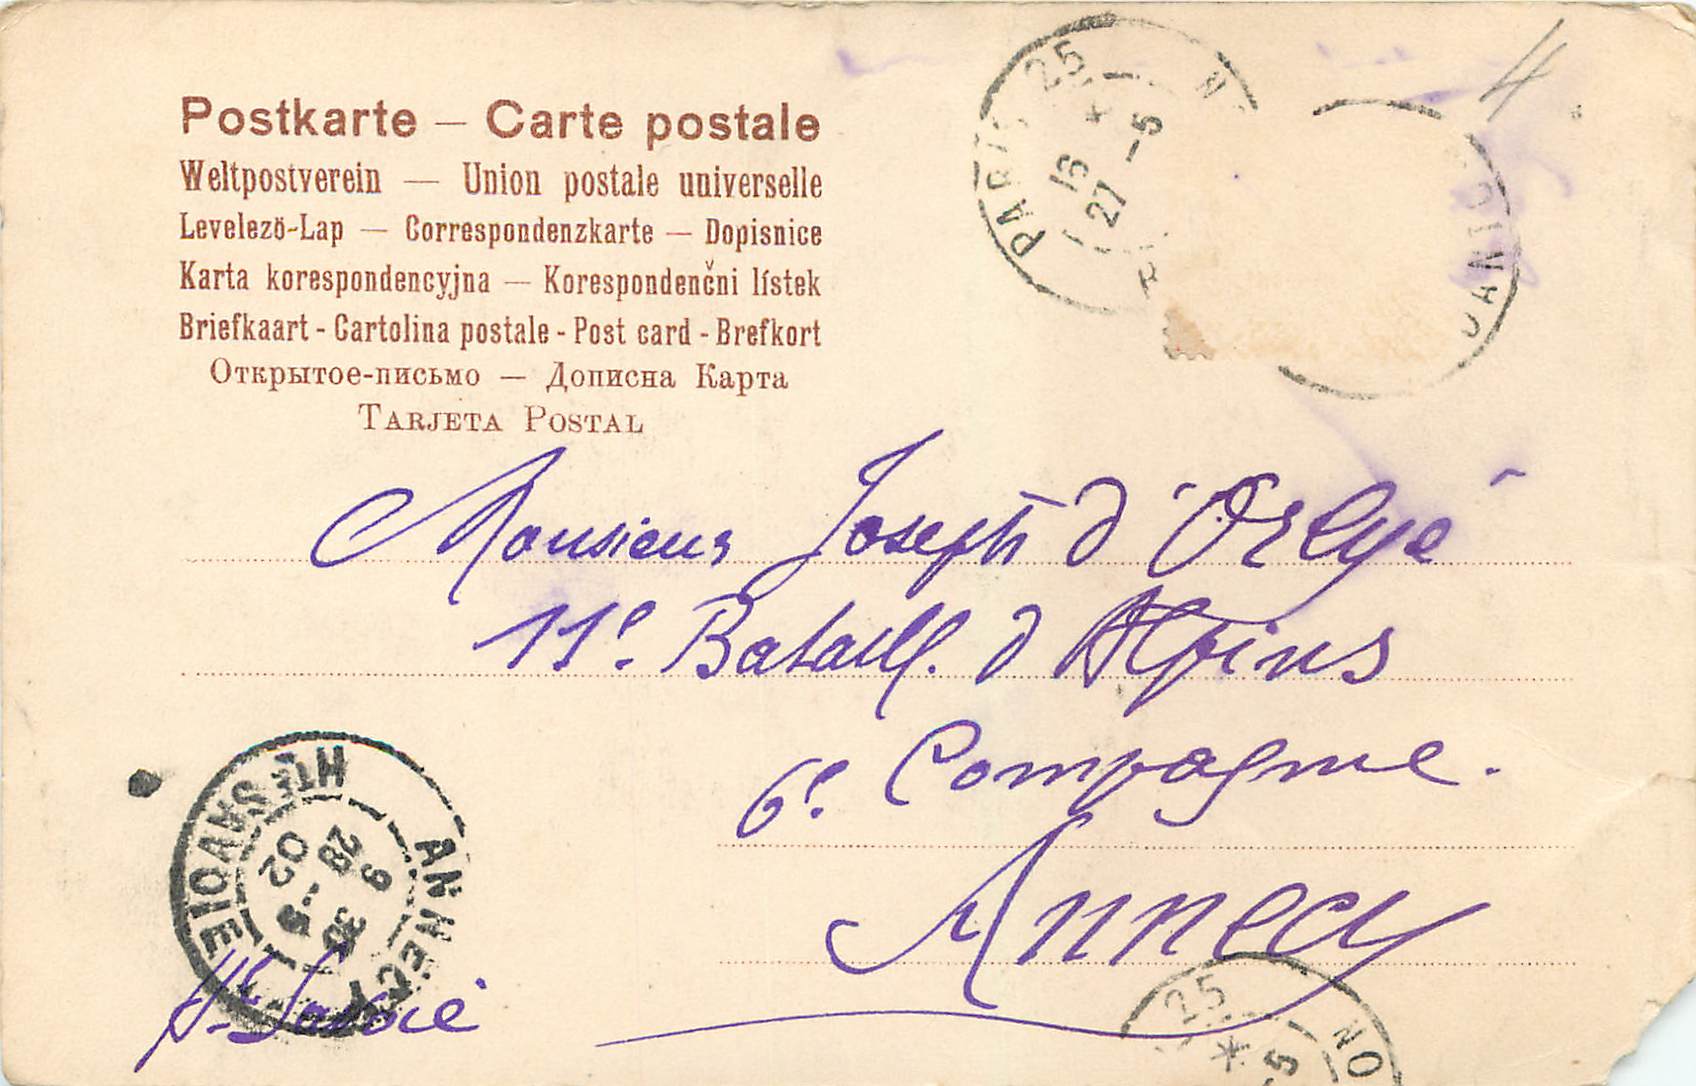 Postkarte – Carte postale
Weltpostverein — Union postale universelle
Levelező-Lap — Correspondenzkarte — Dopisnice
Karta korespondencyjna — Korespondenčni lístek
Briefkaart - Cartolina postale - Post card - Brefkort
Открытое-письмо — Дописна Карта
TARJETA POSTAL
PARIS 25
27 -5
4
Monsieur Joseph d'Orlyé
11e. Bataill. d'Alpins
6e. Compagnie.
Annecy
Hte Savoie
ANNECY HTE SAVOIE
9 30
28 -5
02
25
NO
-5